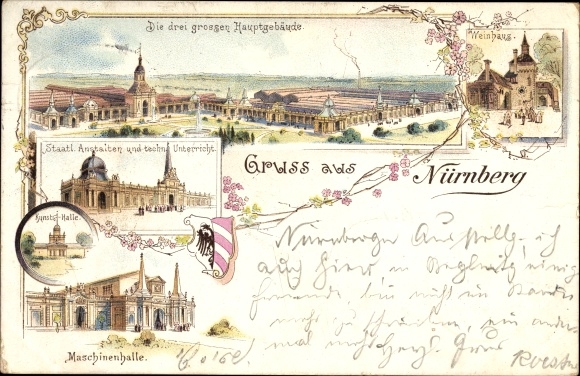 Die drei grossen Hauptgebäude.
Weinhaus.
Staatl. Anstalten und techn. Unterricht.
Gruss aus
Nürnberg
Kunst-Halle.
Maschinenhalle.
Nürnberger Ausstellg. ich
auch hier in Begleitg. einig
Freunde, bin nicht im Stande
mehr zu schreiben, ein ander
mal mehr. Gruss